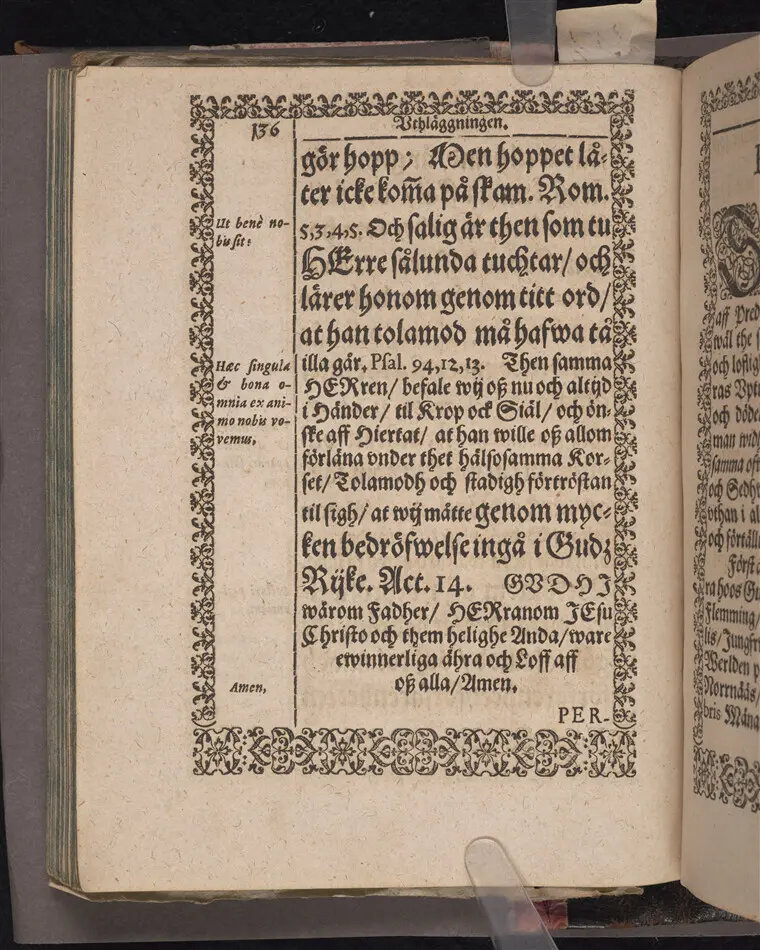 136
Vthläggningen.
gör hopp; Men hoppet lå-
ter icke kom̃a på skam. Rom.
5,3,4,5. Och salig är then som tu
HErre sålunda tuchtar/ och
lärer honom genom titt ord/
at han tolamod må hafwa tå
illa går. Psal. 94,12,13. Then samma
HERren/ befale wij oß nu och altijd
i Händer/ til Krop ock Siäl/ och ön-
ske aff Hiertat/ at han wille oß allom
förläna vnder thet hälsosamma Kor-
set/ Tolamodh och stadigh förtröstan
til sigh/ at wij måtte genom myc-
ken bedröfwelse ingå i Gudz
Rijke. Act. 14. GVDHI
wårom Fadher/ HERranom JEsu
Christo och them helighe Anda/ ware
ewinnerliga ähra och Loff aff
oß alla/ Amen.
PER-
Ut benè no-
bis sit:
Hæc singula
& bona o-
mnia ex ani-
mo nobis vo-
vemus,
Amen,
aff Pred
wäl the
och loflig
ras Vpt
och döde
man
samma
och Sedh
vthan i al
och förtäll
Först a
ra hoos Gu
Flemming/
lis/ Jungfr
Werlden p
Norrnääs/
bris Måna